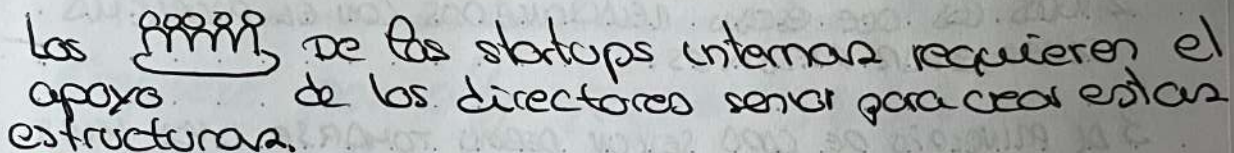 Los De las startups internas requieren el
apoyo de los directores senior para crear estas
estructuras.